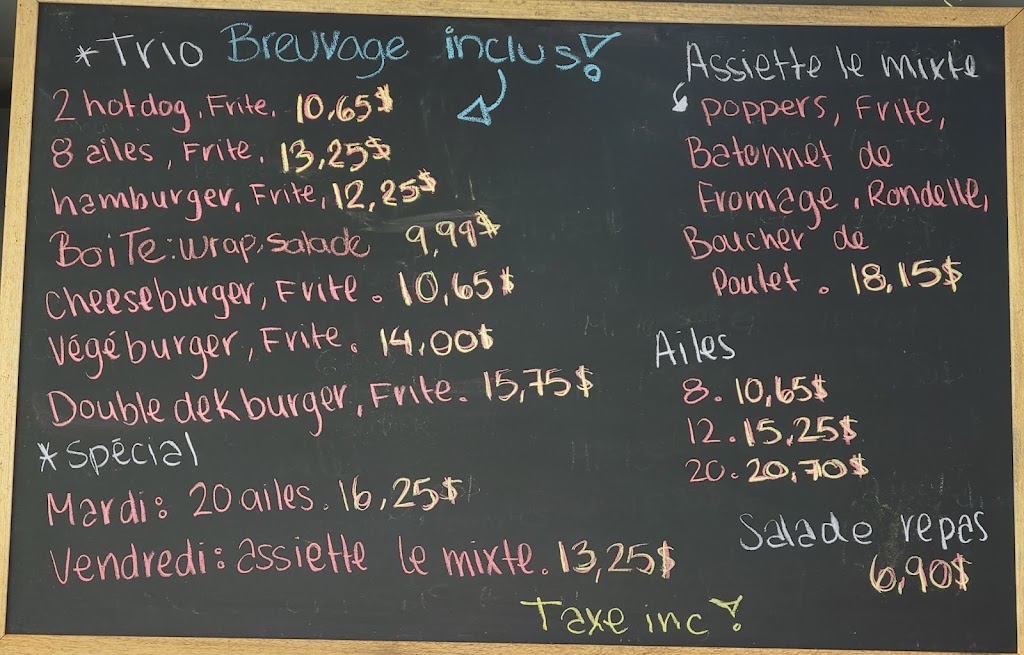 *Trio Breuvage inclus!
2 hotdog, Frite. 10,65$
8 ailes, Frite. 13,25$
hamburger, Frite, 12,25$
Boite: wrap, salade 9,99$
Cheeseburger, Frite. 10,65$
Végéburger, Frite. 14,00$
Double dek burger, Frite. 15,75$
*Spécial
Mardi: 20 ailes. 16,25$
Vendredi: assiette le mixte. 13,25$
Assiette le mixte
poppers, Frite,
Batonnet de
Fromage, Rondelle,
Boucher de
Poulet. 18,15$
Ailes
8. 10,65$
12. 15,25$
20. 20,70$
Salade repas
6,90$
Taxe inc!